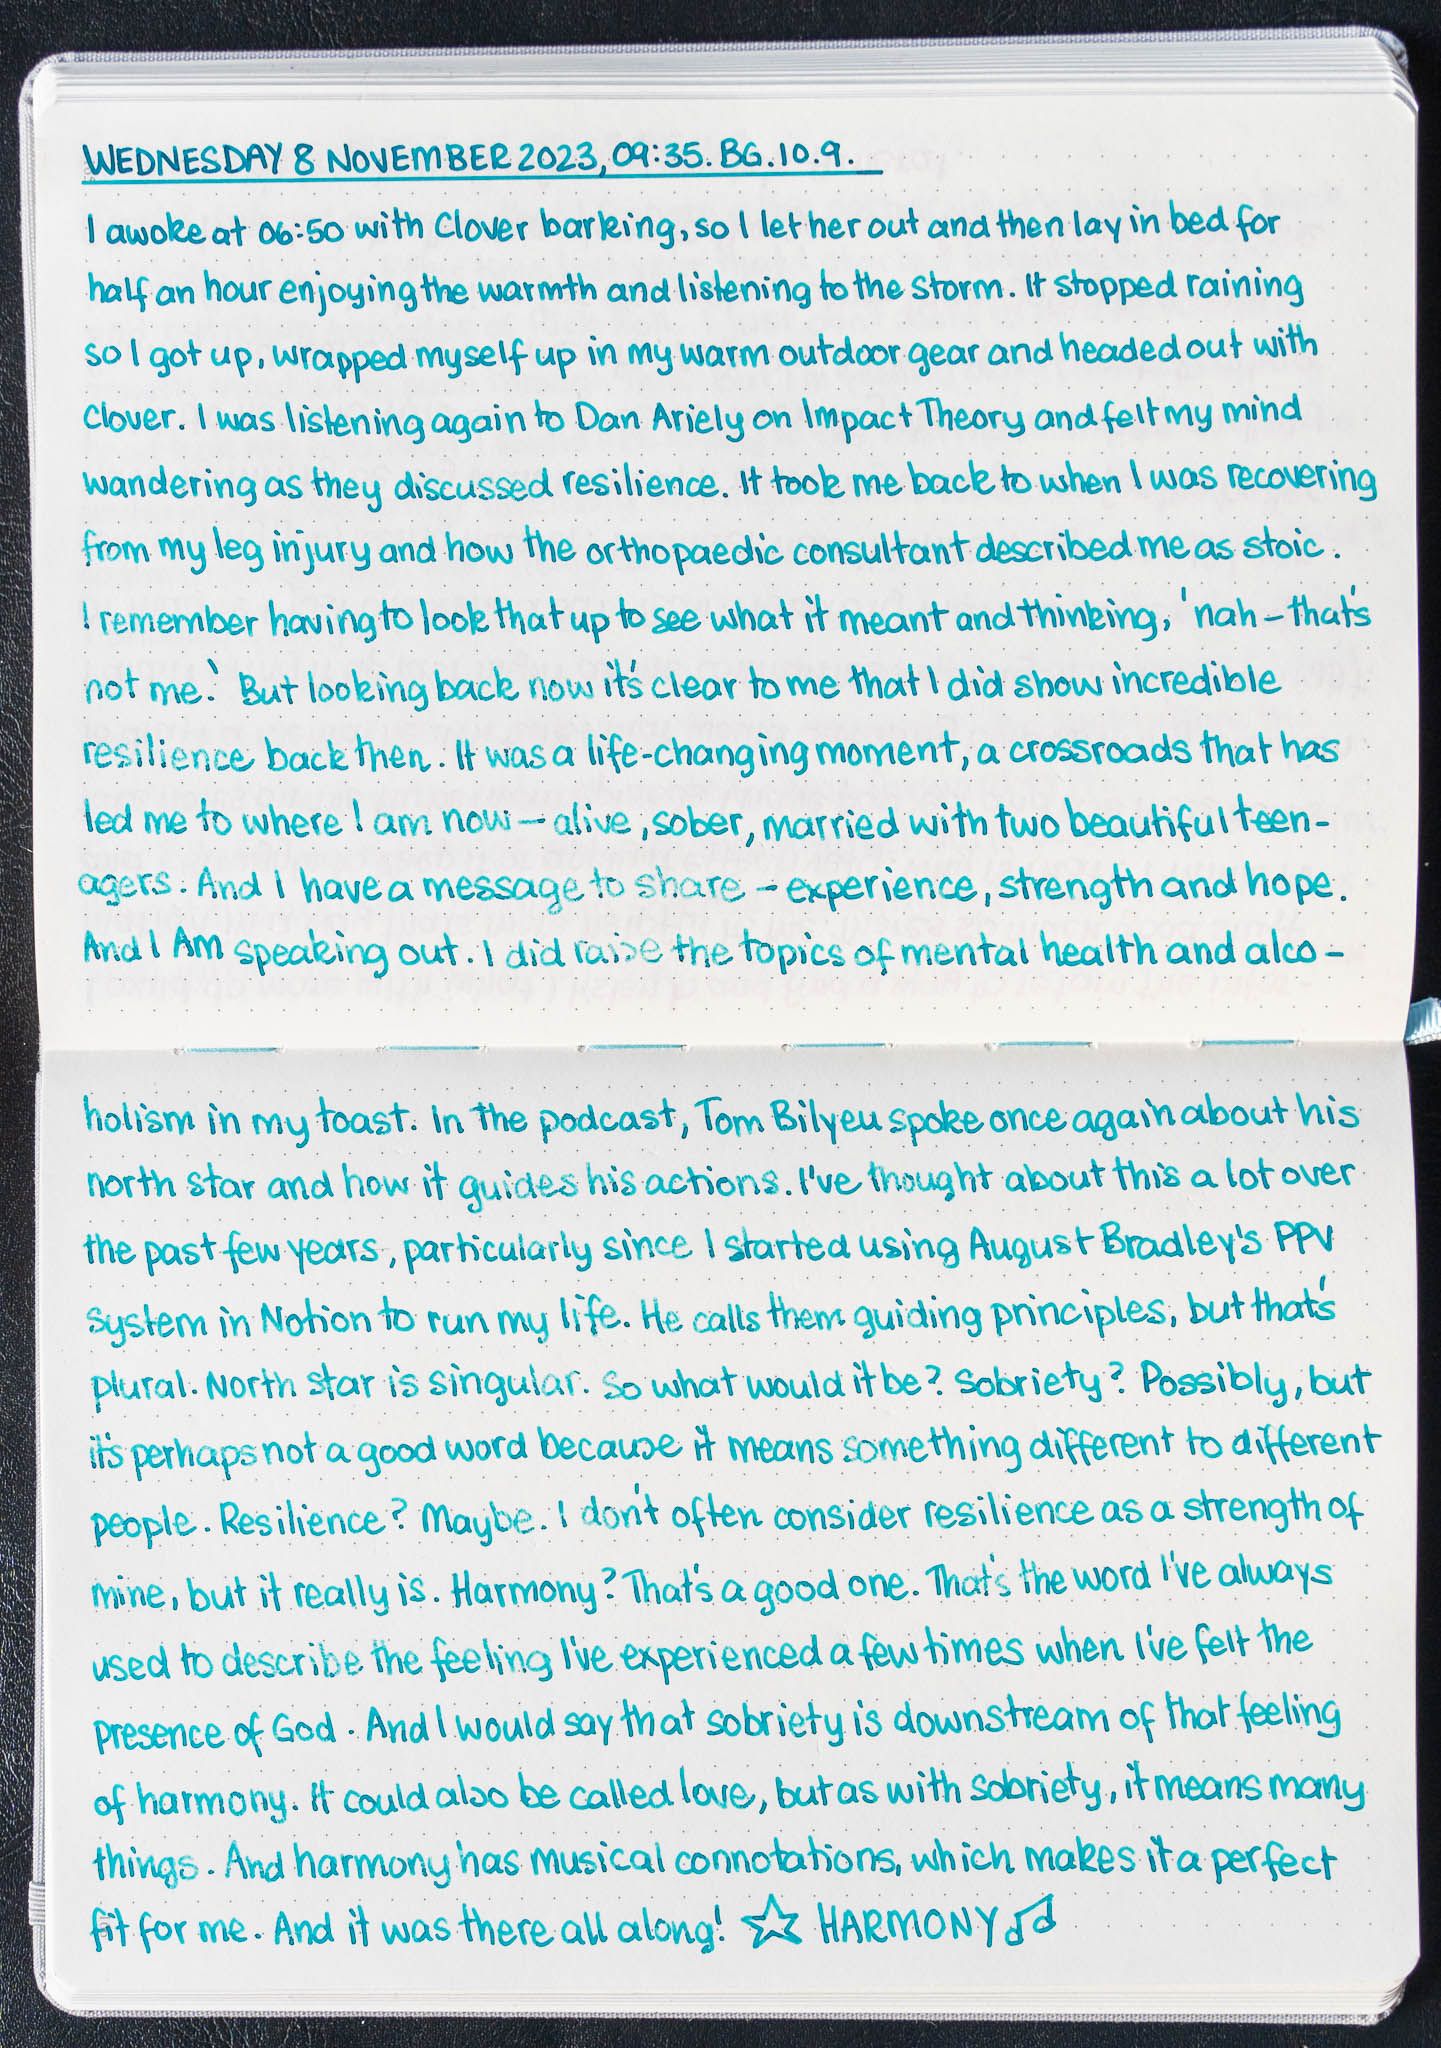 WEDNESDAY 8 NOVEMBER 2023, 09:35. BG.10.9.
I awoke at 06:50 with Clover barking, so I let her out and then lay in bed for
half an hour enjoying the warmth and listening to the storm. It stopped raining
so I got up, wrapped myself up in my warm outdoor gear and headed out with
Clover. I was listening again to Dan Ariely on Impact Theory and felt my mind
wandering as they discussed resilience. It took me back to when I was recovering
from my leg injury and how the orthopaedic consultant described me as stoic.
I remember having to look that up to see what it meant and thinking, 'nah – that's
not me.' But looking back now it's clear to me that I did show incredible
resilience back then. It was a life-changing moment, a crossroads that has
led me to where I am now – alive, sober, married with two beautiful teen-
agers. And I have a message to share – experience, strength and hope.
And I AM speaking out. I did raise the topics of mental health and alco-
holism in my toast. In the podcast, Tom Bilyeu spoke once again about his
north star and how it guides his actions. I've thought about this a lot over
the past few years, particularly since I started using August Bradley's PPV
system in Notion to run my life. He calls them guiding principles, but that's
plural. North star is singular. So what would it be? Sobriety? Possibly, but
it's perhaps not a good word because it means something different to different
people. Resilience? Maybe. I don't often consider resilience as a strength of
mine, but it really is. Harmony? That's a good one. That's the word I've always
used to describe the feeling I've experienced a few times when I've felt the
presence of God. And I would say that sobriety is downstream of that feeling
of harmony. It could also be called love, but as with sobriety, it means many
things. And harmony has musical connotations, which makes it a perfect
fit for me. And it was there all along! ☆ HARMONY ♫